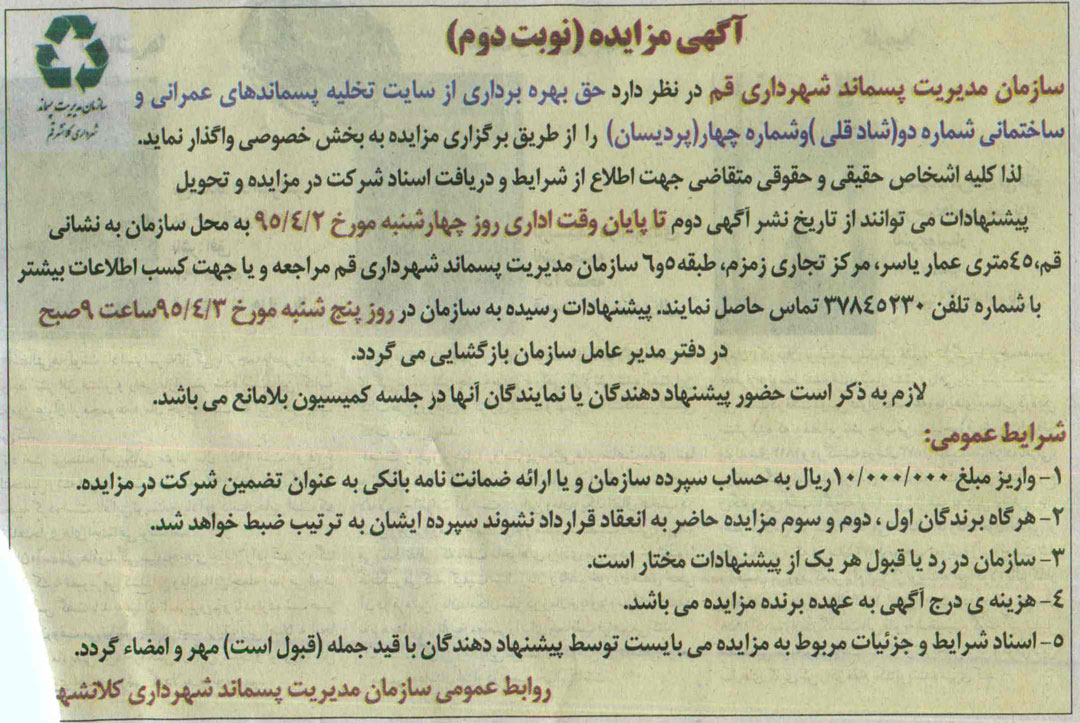 آگهی مزایده (نوبت دوم)
سازمان مدیریت پسماند
شهرداری کلانشهر قم
سازمان مدیریت پسماند شهرداری قم در نظر دارد حق بهره برداری از سایت تخلیه پسماندهای عمرانی و
ساختمانی شماره دو(شاد قلی )وشماره چهار(پردیسان) را از طریق برگزاری مزایده به بخش خصوصی واگذار نماید.
لذا کلیه اشخاص حقیقی و حقوقی متقاضی جهت اطلاع از شرایط و دریافت اسناد شرکت در مزایده و تحویل
پیشنهادات می توانند از تاریخ نشر آگهی دوم تا پایان وقت اداری روز چهارشنبه مورخ ۹۵/٤/۲ به محل سازمان به نشانی
قم،٤۵متری عمار یاسر، مرکز تجاری زمزم، طبقه۵و٦ سازمان مدیریت پسماند شهرداری قم مراجعه و یا جهت کسب اطلاعات بیشتر
با شماره تلفن ۳۷۸٤۵۲۳۰ تماس حاصل نمایند. پیشنهادات رسیده به سازمان در روز پنج شنبه مورخ ۹۵/٤/۳ساعت ۹صبح
در دفتر مدیر عامل سازمان بازگشایی می گردد.
لازم به ذکر است حضور پیشنهاد دهندگان یا نمایندگان آنها در جلسه کمیسیون بلامانع می باشد.
شرایط عمومی:
۱- واریز مبلغ ۱۰/۰۰۰/۰۰۰ریال به حساب سپرده سازمان و یا ارائه ضمانت نامه بانکی به عنوان تضمین شرکت در مزایده.
۲- هرگاه برندگان اول ، دوم و سوم مزایده حاضر به انعقاد قرارداد نشوند سپرده ایشان به ترتیب ضبط خواهد شد.
۳- سازمان در رد یا قبول هر یک از پیشنهادات مختار است.
٤- هزینه ی درج آگهی به عهده برنده مزایده می باشد.
۵- اسناد شرایط و جزئیات مربوط به مزایده می بایست توسط پیشنهاد دهندگان با قید جمله (قبول است) مهر و امضاء گردد.
روابط عمومی سازمان مدیریت پسماند شهرداری کلانشه